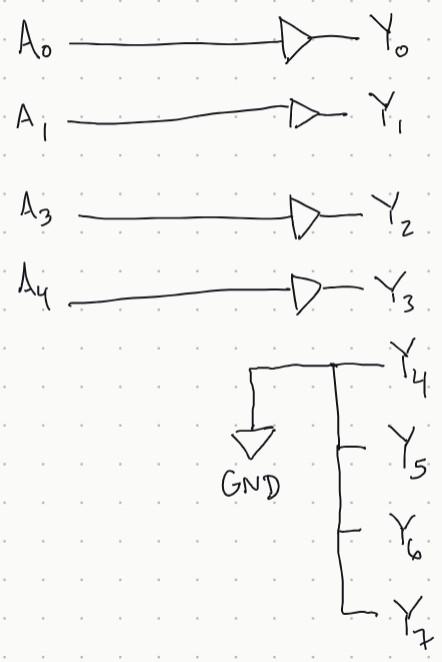 A0 Y0
A1 Y1
A3 Y2
A4 Y3
Y4
GND
Y5
Y6
Y7